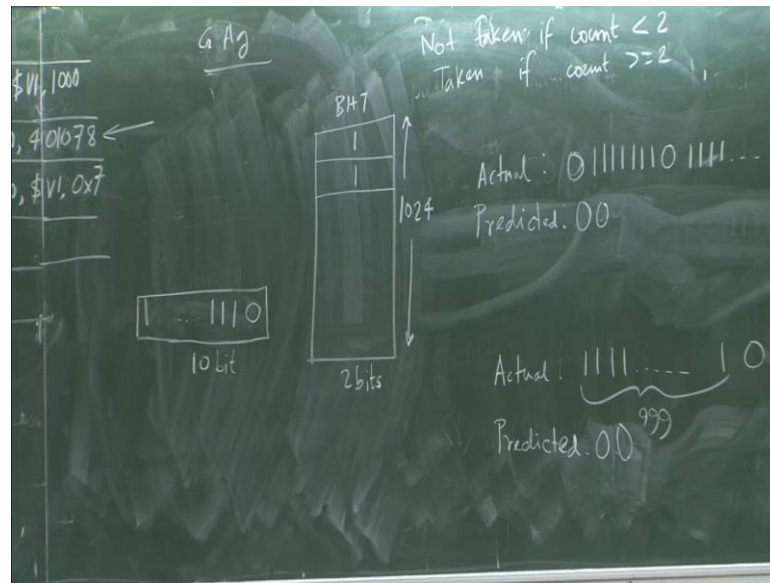 $V1, 1000
, 401078 ←
, $V1, 0x7
GAg
BHT
1
1
1024
2 bits
1 .... 1110
10 bit
Not taken if count < 2
Taken if count >= 2
Actual: 01111111 0 1111...
Predicted: 00
Actual: 1111..... 1 0
999
Predicted. 00